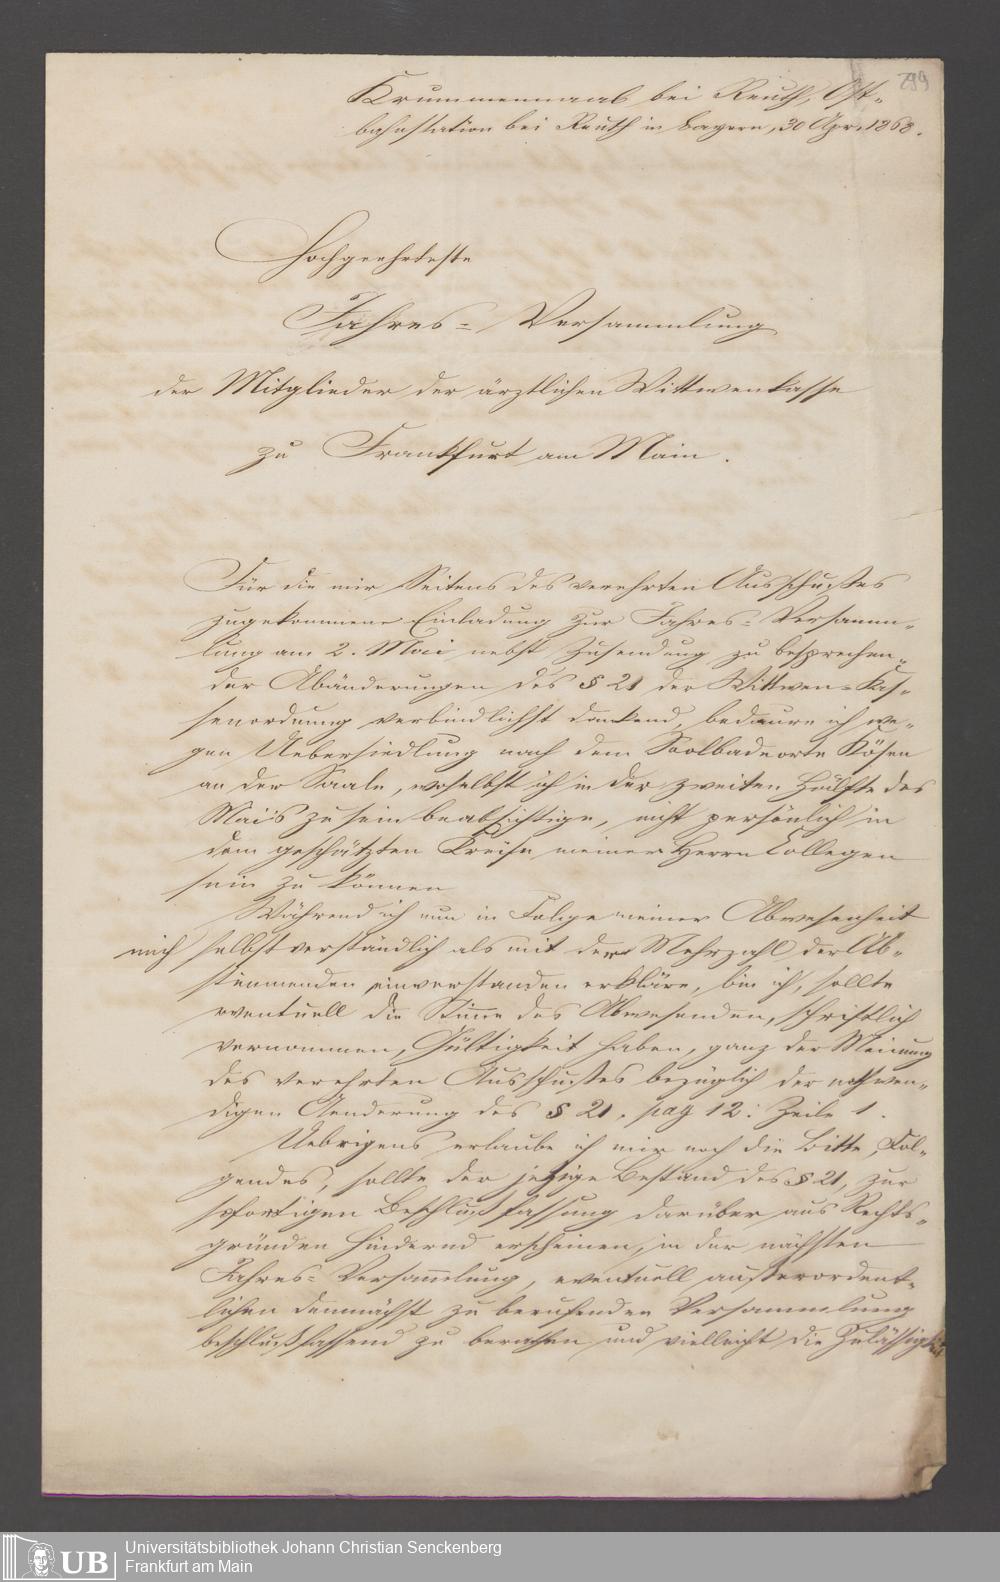 299
Krummennaab bei Reuth, Ost-
bahnstation bei Reuth in Bayern, 30 Apr. 1868.
Hochgeehrteste
Jahres-Versammlung
der Mitglieder der ärztlichen Wittwenkasse
zu Frankfurt am Main.
Für die mir Seitens des verehrten Ausschußes
zugekommene Einladung zur Jahres-Versamm-
lung am 2. Mai nebst Zusendung zu besprechen-
der Abänderungen des § 21 der Wittwen-Kas-
senordnung verbindlichst dankend, bedaure ich we-
gen Uebersiedlung nach dem Soolbadeorte Kösen
an der Saale, woselbst ich in der zweiten Hälfte des
Mai's zu sein beabsichtige, nicht persönlich in
dem geschätzten Kreise meiner Herrn Collegen
sein zu können
Während ich nun in Folge meiner Abwesenheit
mich selbstverständlich als mit der Mehrzahl der Ab-
stimmenden einverstanden erkläre, bin ich, sollte
eventuell die Stimme des Abwesenden, schriftlich
vernommen, Gültigkeit haben, ganz der Meinung
des verehrten Ausschußes bezüglich der nothwen-
digen Aenderung des § 21. pag 12: Zeile 1.
Uebrigens erlaube ich mir noch die Bitte, Fol-
gendes, sollte der jetzige Bestand des § 21, zur
sofortigen Beschlußfassung darüber aus Rechts-
gründen hindernd erscheinen, in der nächsten
Jahres-Versammlung, eventuell außerordent-
lichen demnächst zu berufenden Versammlung
beschlußfassend zu berathen und vielleicht die Zulässigkeit
UB
Universitätsbibliothek Johann Christian Senckenberg
Frankfurt am Main